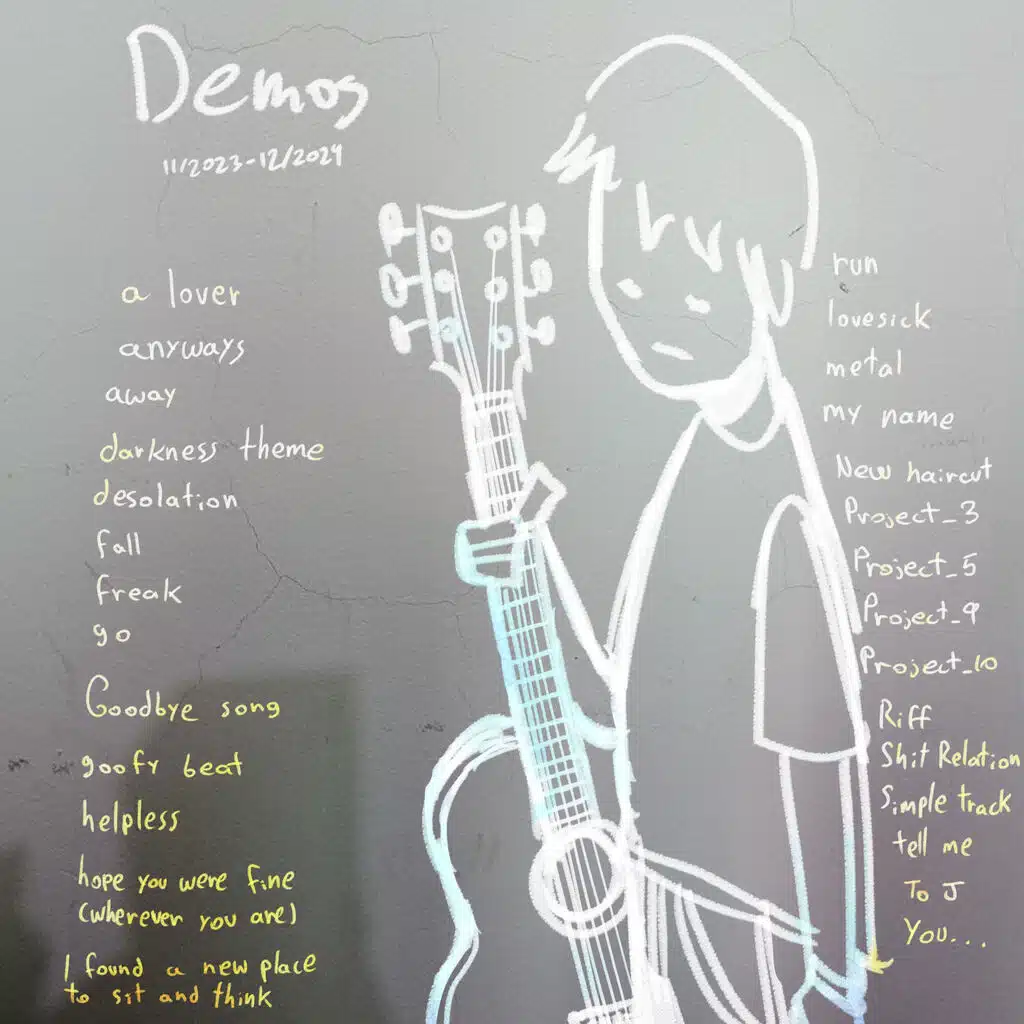 Demos
11/2023-12/2024
a lover
anyways
away
darkness theme
desolation
fall
freak
go
Goodbye song
goofy beat
helpless
hope you were fine
(wherever you are)
I found a new place
to sit and think
run
lovesick
metal
my name
New haircut
Project_3
Project_5
Project_9
Project_10
Riff
Shit Relation
Simple track
tell me
To J
You...